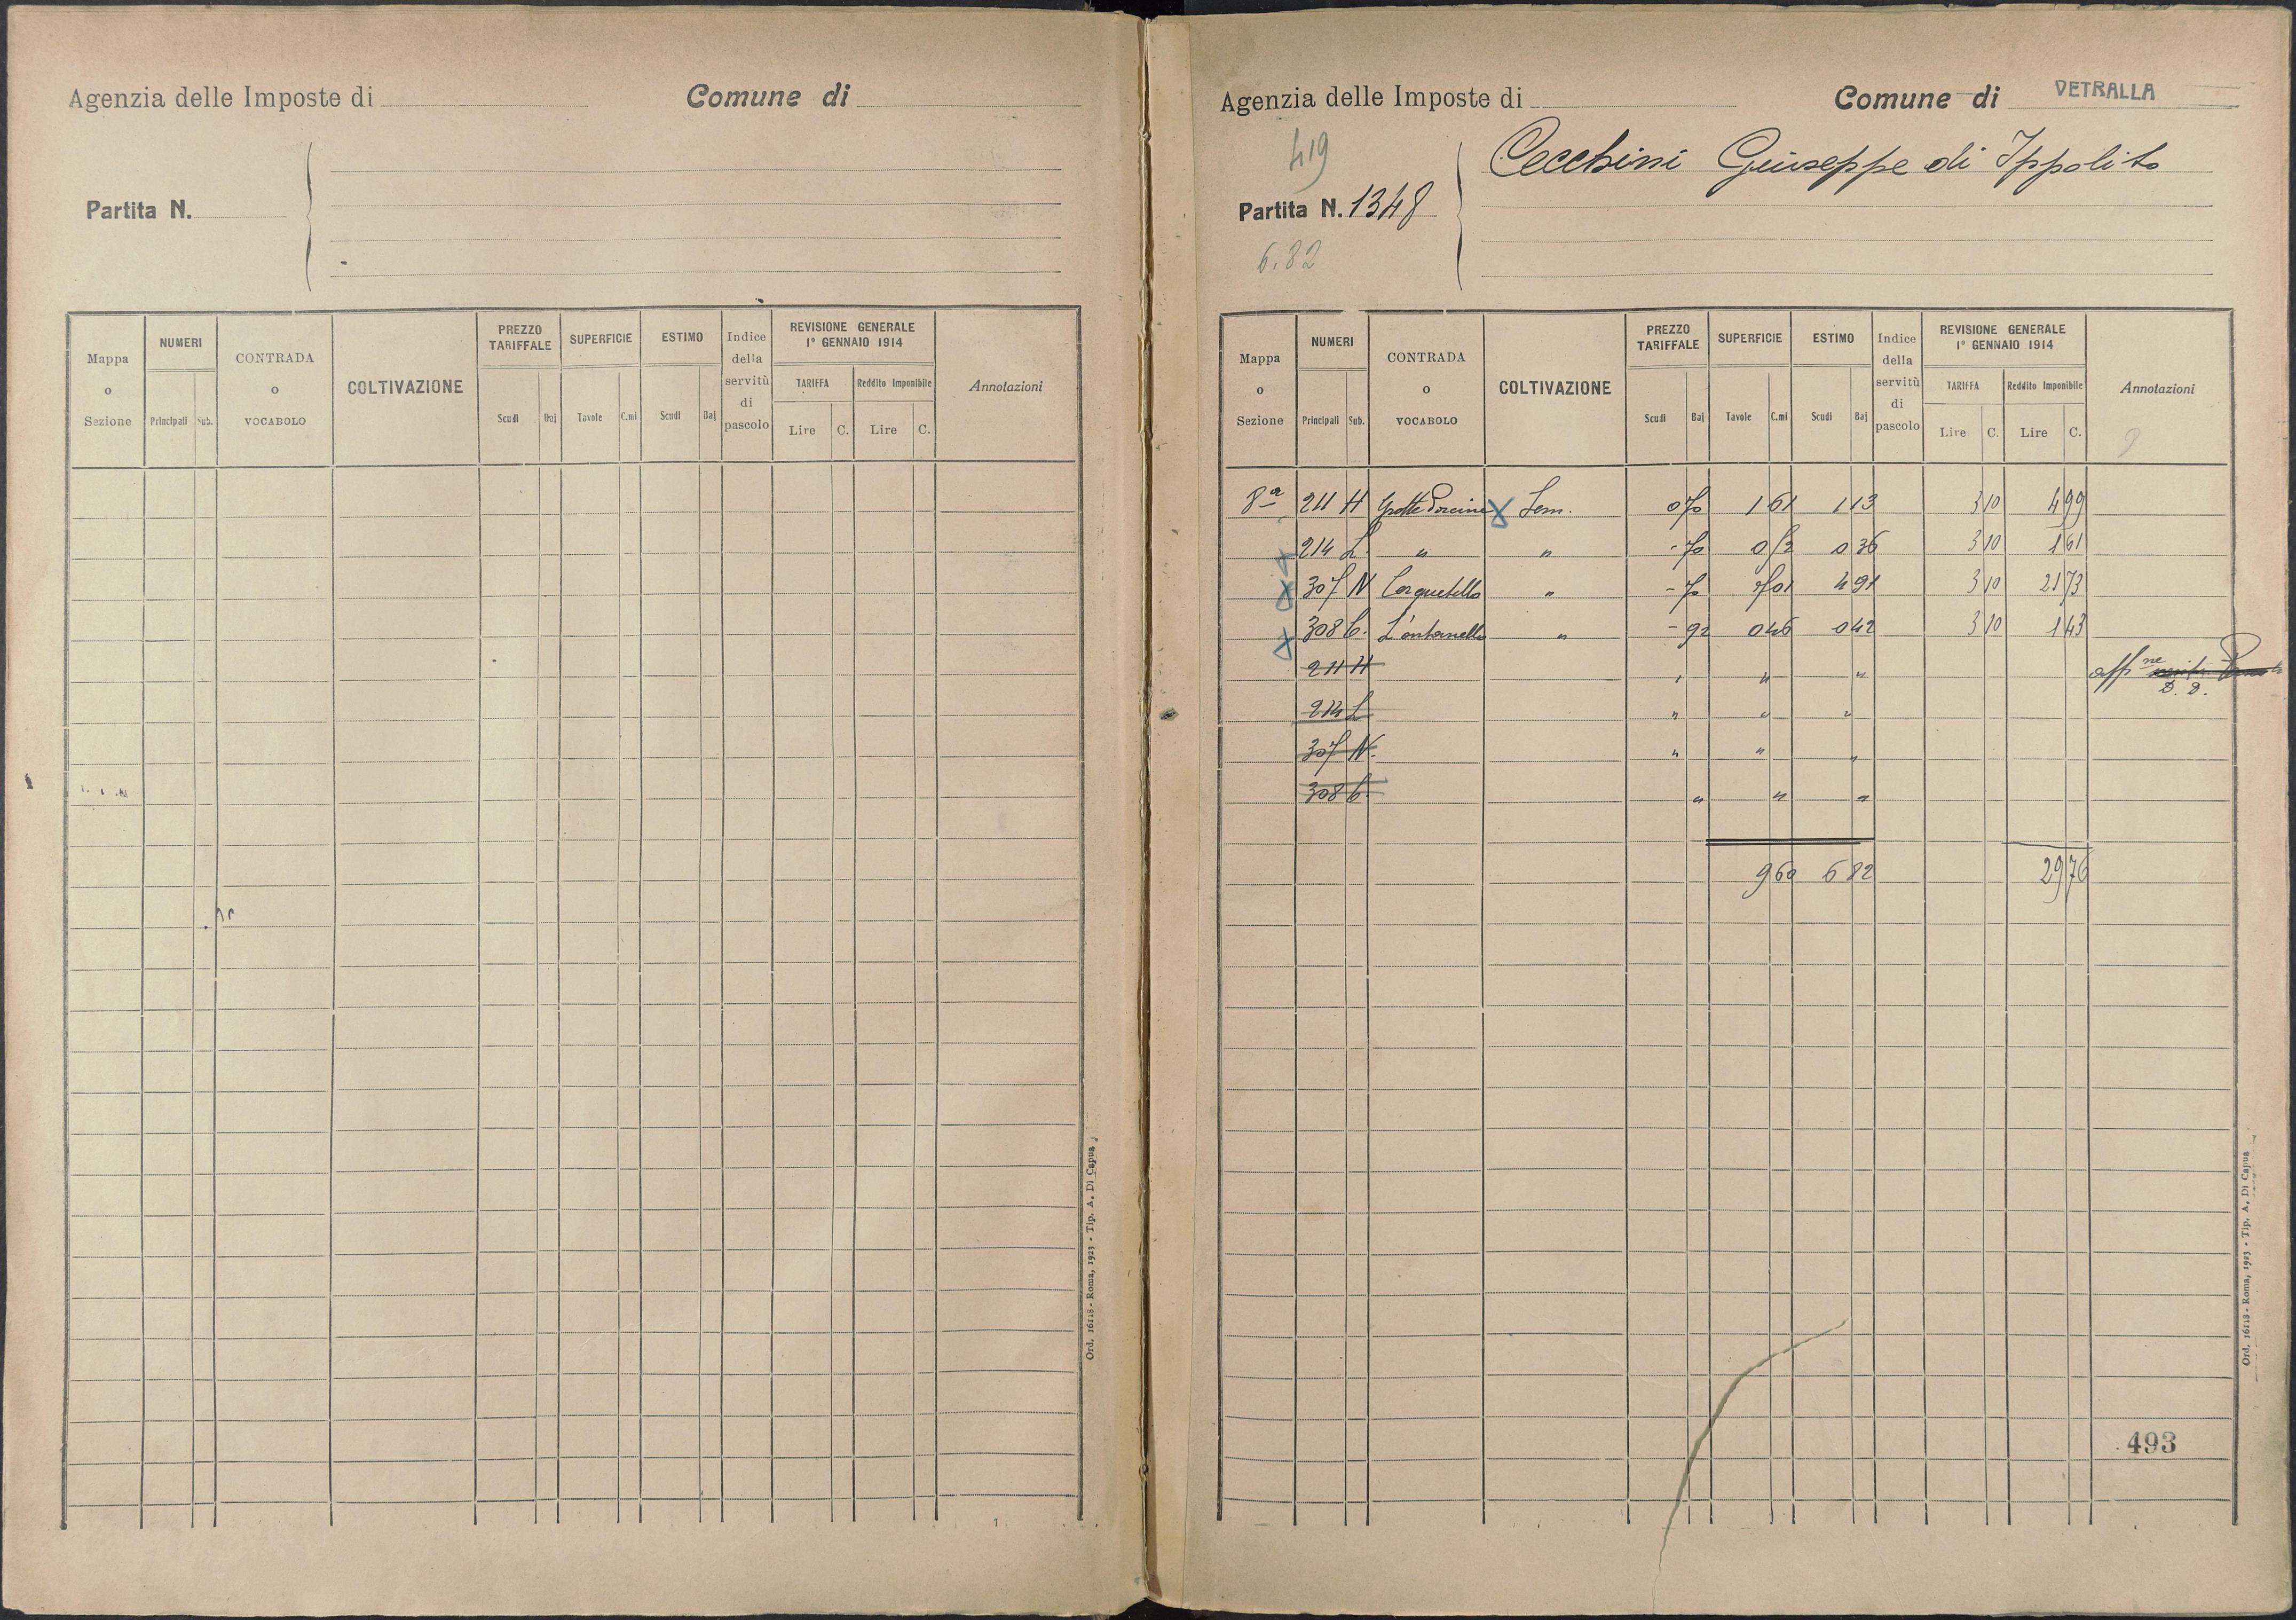 Agenzia delle Imposte di Comune di
Partita N.
Mappa o Sezione NUMERI Principali Sub. CONTRADA o VOCABOLO COLTIVAZIONE PREZZO TARIFFALE Scudi Baj SUPERFICIE Tavole C.mi ESTIMO Scudi Baj Indice della servitù di pascolo REVISIONE GENERALE 1° GENNAIO 1914 TARIFFA Lire C. Reddito Imponibile Lire C. Annotazioni
Ord. 16118 - Roma, 1923 - Tip. A. Di Capua
Agenzia delle Imposte di Comune di VETRALLA
419
Cecchini Giuseppe di Ippolito
Partita N. 1348
6.82
Mappa o Sezione NUMERI Principali Sub. CONTRADA o VOCABOLO COLTIVAZIONE PREZZO TARIFFALE Scudi Baj SUPERFICIE Tavole C.mi ESTIMO Scudi Baj Indice della servitù di pascolo REVISIONE GENERALE 1° GENNAIO 1914 TARIFFA Lire C. Reddito Imponibile Lire C. Annotazioni
8ª 211 H Grotte Porcine Sem. 0 70 1 61 1 13 3 10 4 99
214 L " " - 70 0 52 0 36 3 10 1 61
307 N Cerquetello " - 70 7 01 4 91 3 10 21 73
308 C. " - 92 0 46 0 42 3 10 1 43
211 H " " " aff ne D. D.
214 L " " "
307 N. " " "
308 C. " " "
9 60 6 82 29 76
493
Ord. 16118 - Roma, 1923 - Tip. A. Di Capua